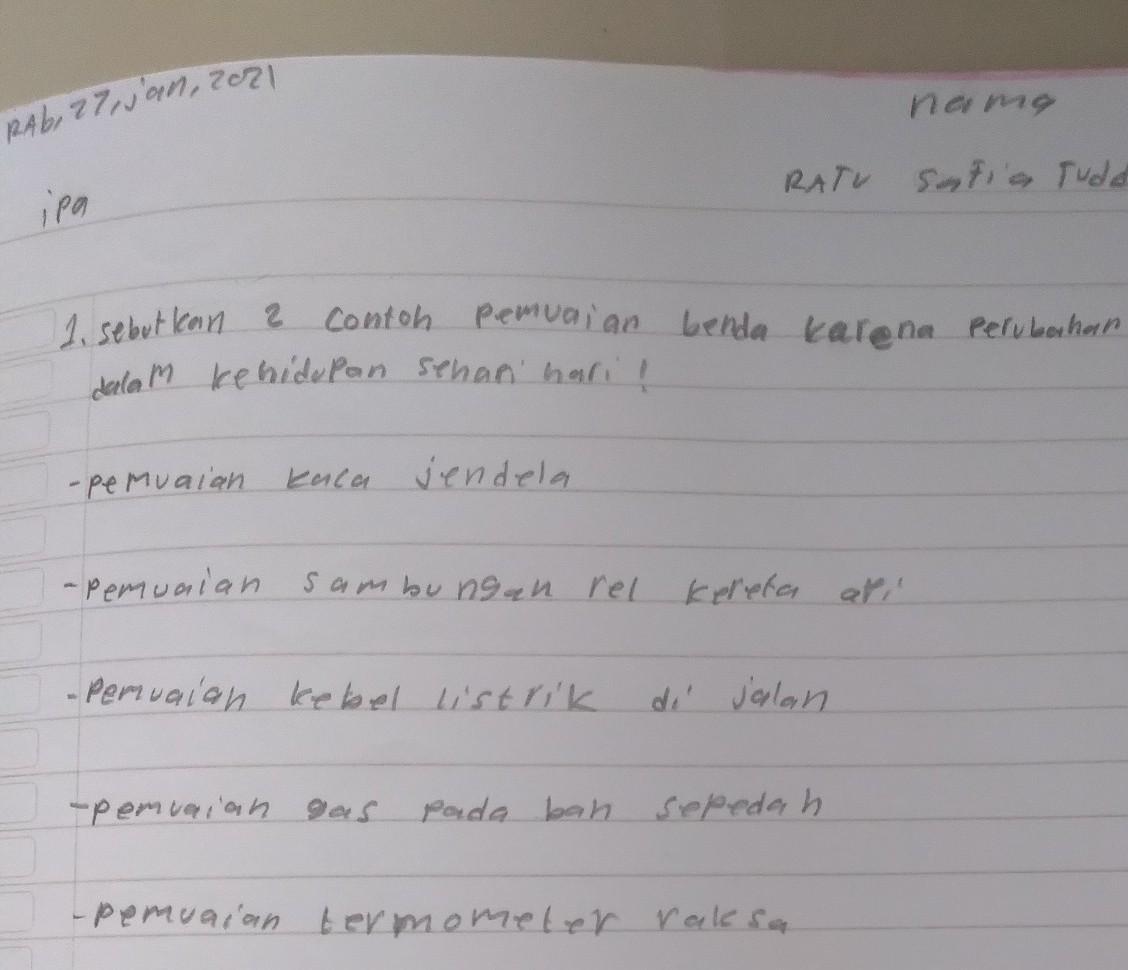 RAb, 27, jan, 2021
nama
RATU Safia Tudd
ipa
1. sebutkan 2 contoh pemuaian benda karena perubahan
dalam kehidupan sehari hari !
-pemuaian kaca jendela
-pemuaian sambungan rel kereta api
-pemuaian kebel listrik di jalan
-pemuaian gas pada ban sepedah
-pemuaian termometer raksa